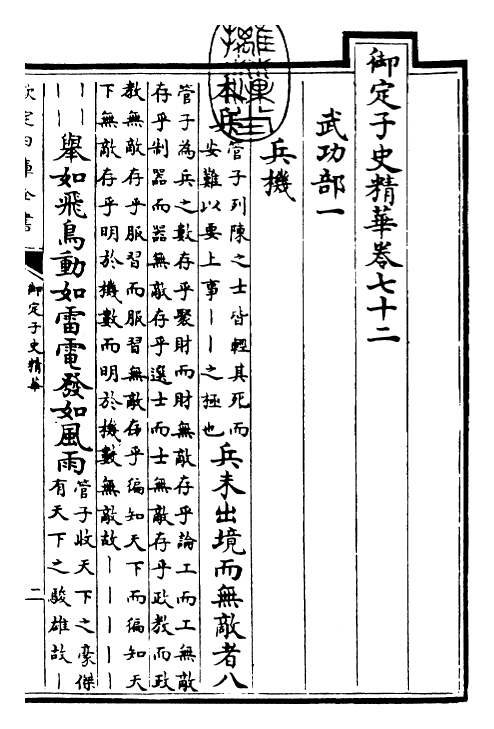 御定子史精華卷七十二
武功部一
兵機
本兵
管子列陳之士皆輕其死而
安難以要上事〡〡之極也
兵未出境而無敵者八
管子為兵之數存乎聚財而財無敵存乎論工而工無敵
存乎制器而器無敵存乎選士而士無敵存乎政教而政
教無敵存乎服習而服習無敵存乎徧知天下而徧知天
下無敵存乎明於機數而明於機數無敵故〡〡〡〡〡
〡〡
〡〡
舉如飛鳥動如雷電發如風雨
管子收天下之豪傑
有天下之駿雄故〡〡
欽定四庫全書
御定子史精華
二